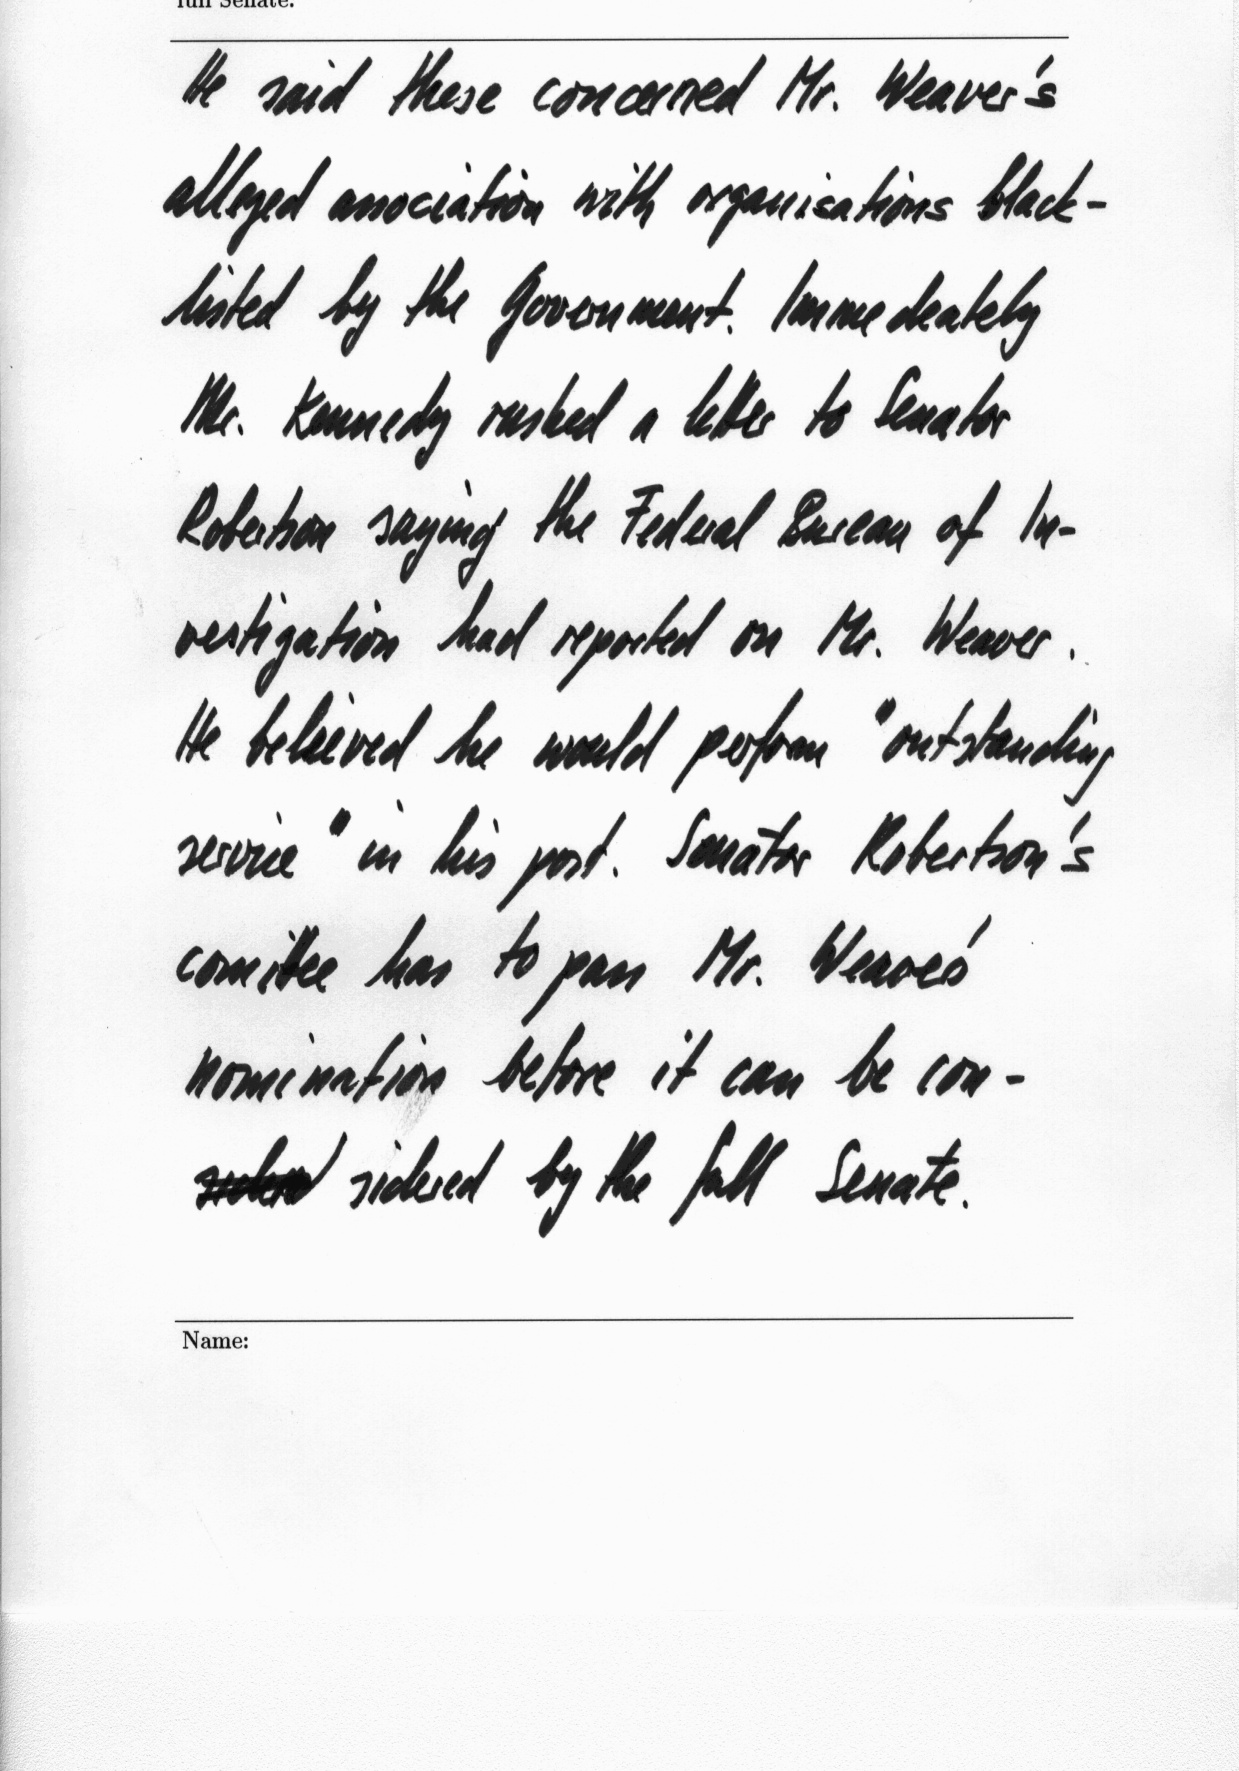 full Senate.
He said these concerned Mr. Weaver's
alleged association with organisations black-
listed by the Government. Immediately
Mr. Kennedy rushed a letter to Senator
Robertson saying the Federal Bureau of In-
vestigation had reported on Mr. Weaver.
He believed he would perform "outstanding
service" in his post. Senator Robertson's
comittee has to pass Mr. Weaver's
nomination before it can be con-
sidered by the full Senate.
Name: